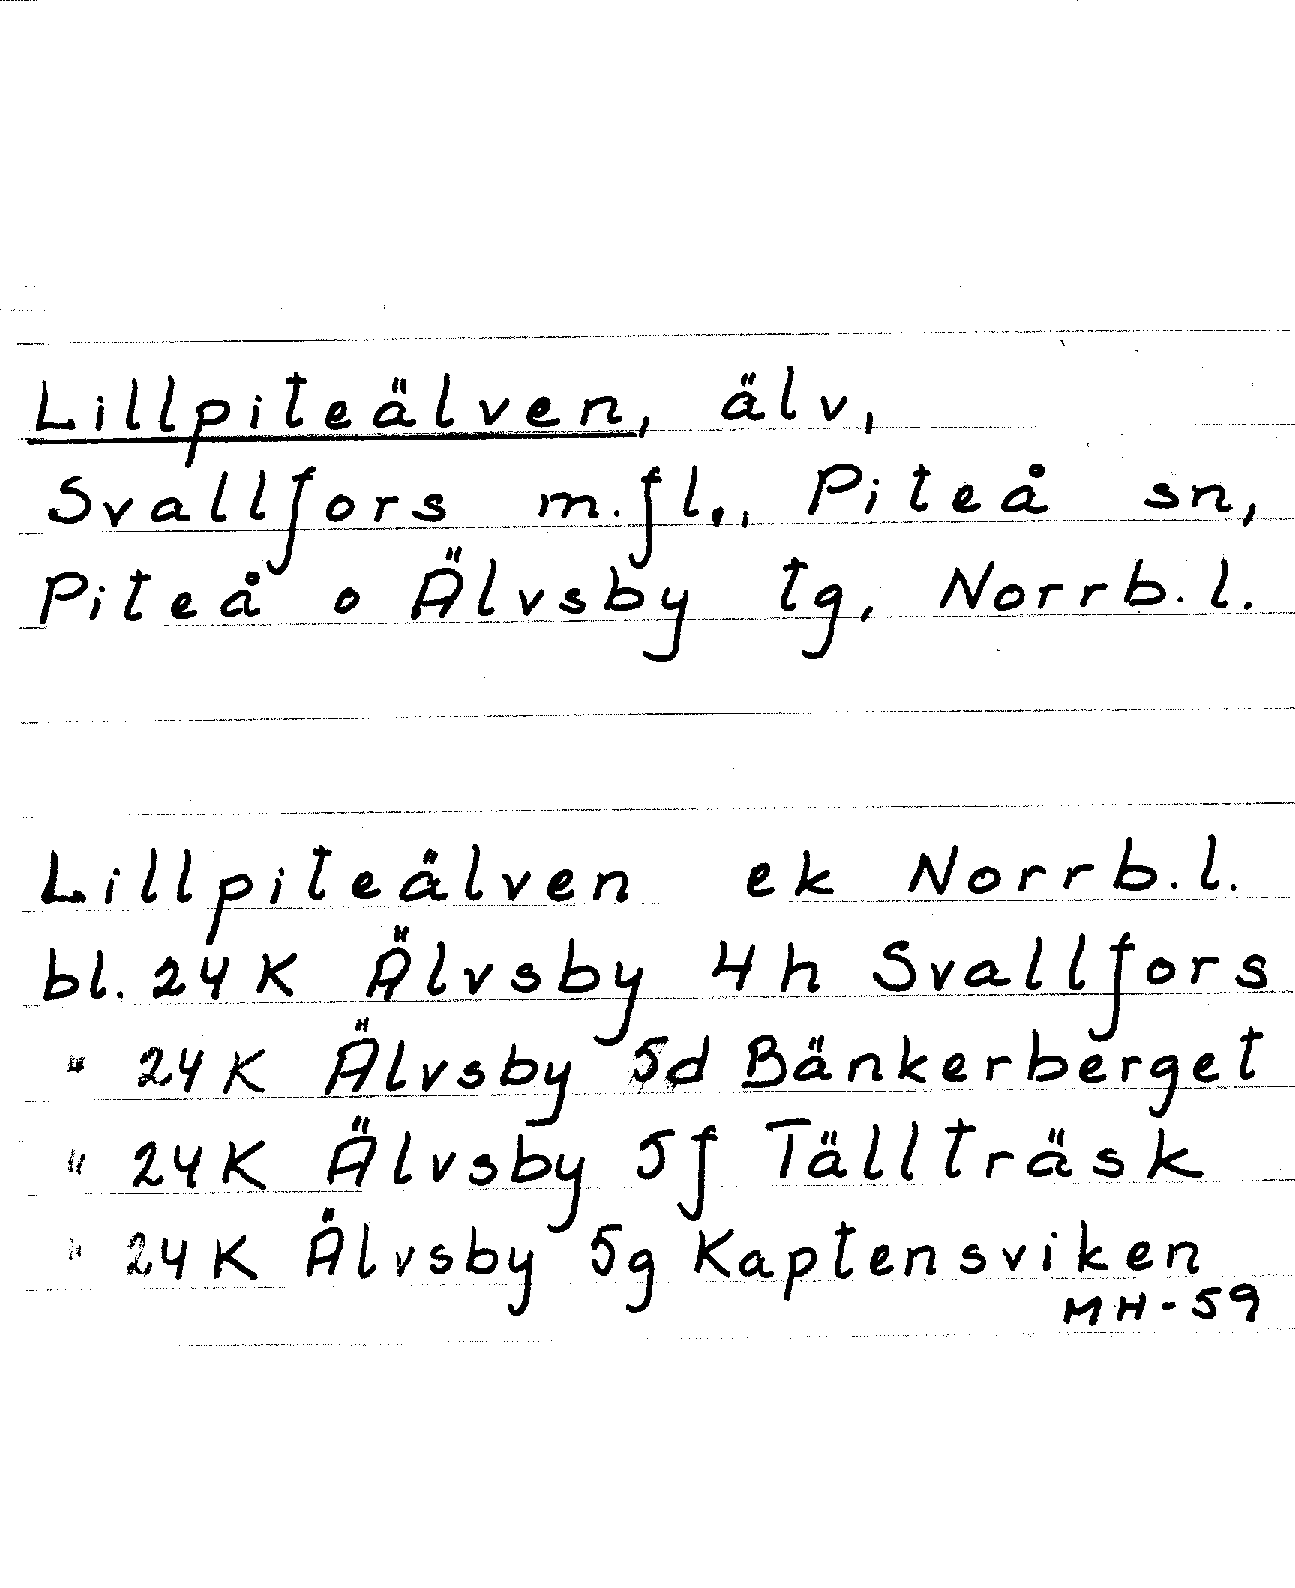 Lillpiteälven, älv,
Svallfors m.fl., Piteå sn,
Piteå o Älvsby tg, Norrb.l.
Lillpiteälven ek Norrb.l.
bl. 24K Älvsby 4h Svallfors
" 24K Älvsby 5d Bänkerberget
" 24K Älvsby 5f Tällträsk
" 24K Älvsby 5g Kaptensviken
MH-59